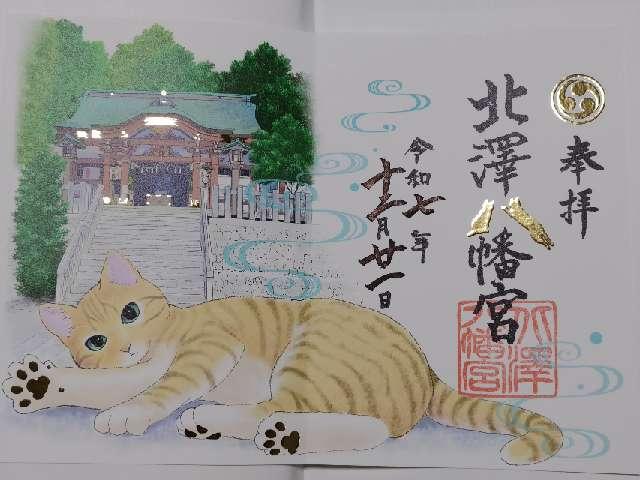 奉拝
北澤八幡宮
令和七年
十二月廿一日
北澤
八幡宮